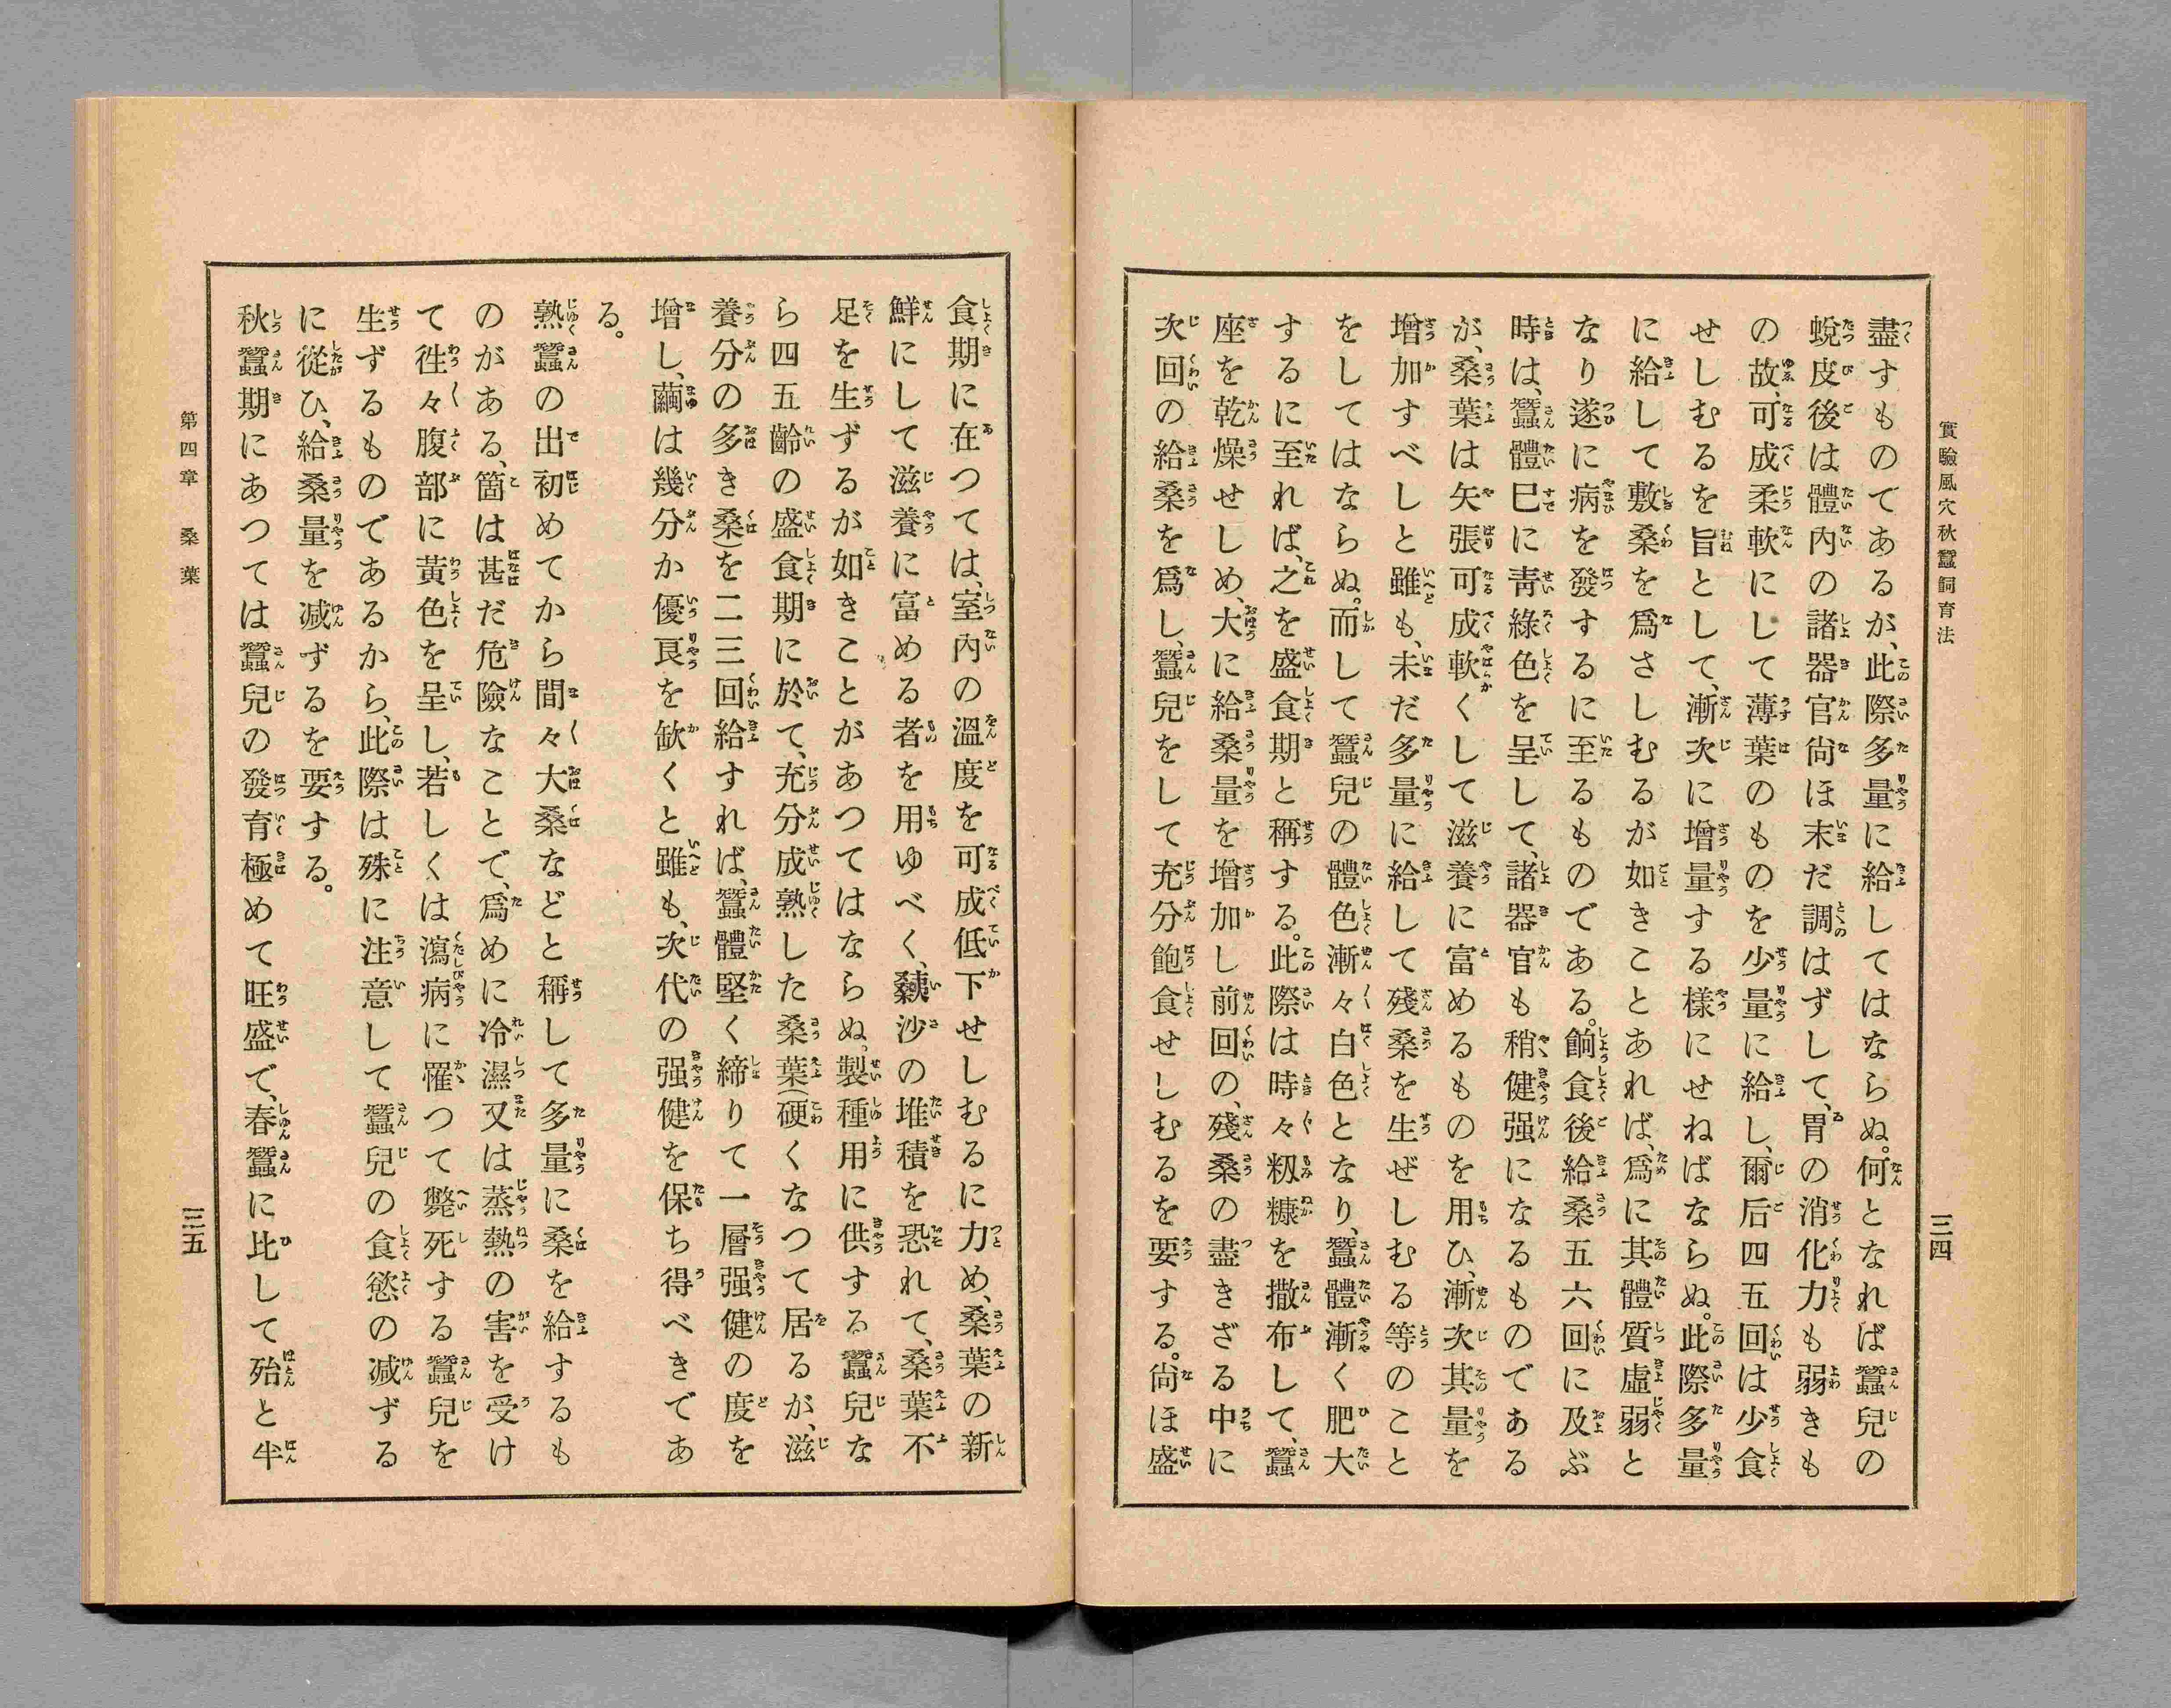 實驗風穴秋蠶飼育法
三四
盡すものてあるが、此際多量に給してはならぬ。何となれば蠶兒の
蛻皮後は體內の諸器官尙ほ未だ調はずして、胃の消化力も弱きも
の故、可成柔軟にして薄葉のものを少量に給し、爾后四五回は少食
せしむるを旨として、漸次に增量する樣にせねばならぬ。此際多量
に給して敷桑を爲さしむるが如きことあれば、爲に其體質虛弱と
なり遂に病を發するに至るものである。餉食後給桑五六回に及ぶ
時は、蠶體巳に靑綠色を呈して、諸器官も稍健强になるものである
が、桑葉は矢張可成軟くして滋養に富めるものを用ひ、漸次其量を
增加すべしと雖も、未だ多量に給して殘桑を生ぜしむる等のこと
をしてはならぬ。而して蠶兒の體色漸々白色となり、蠶體漸く肥大
するに至れば、之を盛食期と稱する。此際は時々籾糠を撒布して、蠶
座を乾燥せしめ、大に給桑量を增加し前回の、殘桑の盡きざる中に
次回の給桑を爲し、蠶兒をして充分飽食せしむるを要する。尙ほ盛
食期に在つては、室內の溫度を可成低下せしむるに力め、桑葉の新
鮮にして滋養に富める者を用ゆべく、䴲沙の堆積を恐れて、桑葉不
足を生ずるが如きことがあつてはならぬ。製種用に供する蠶兒な
ら四五齡の盛食期に於て、充分成熟した桑葉(硬くなつて居るが、滋
養分の多き桑)を二三回給すれば、蠶體堅く締りて一層强健の度を
增し、繭は幾分か優良を缺くと雖も、次代の强健を保ち得べきであ
る。
熟蠶の出初めてから間々大桑などと稱して多量に桑を給するも
のがある、箇は甚だ危險なことで、爲めに冷濕又は蒸熱の害を受け
て徃々腹部に黃色を呈し、若しくは瀉病に罹つて斃死する蠶兒を
生ずるものであるから、此際は殊に注意して蠶兒の食慾の减ずる
に從ひ、給桑量を减ずるを要する。
秋蠶期にあつては蠶兒の發育極めて旺盛で、春蠶に比して殆と半
第四章　桑葉
三五